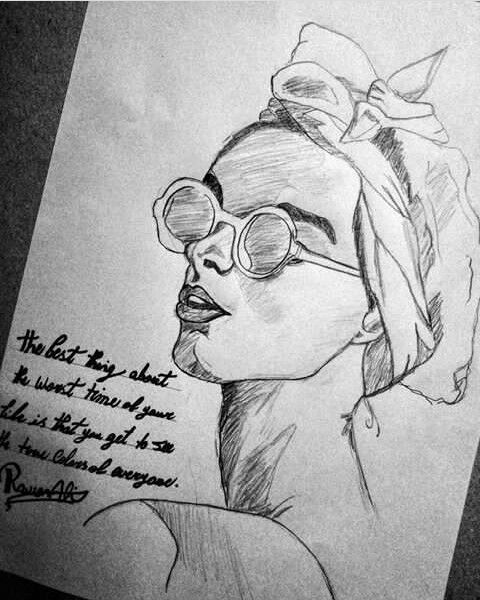 the best thing about
the worst time of your
Life is that you get to see
the true Colors of everyone.
Rawan Ali